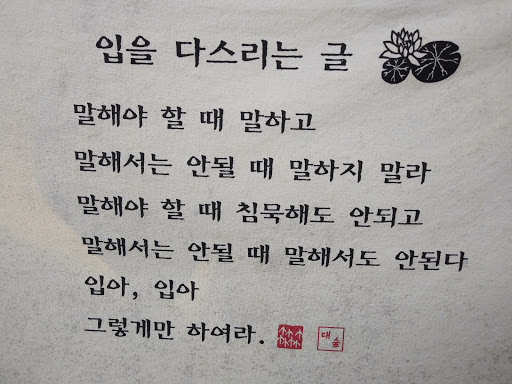 입을 다스리는 글
말해야 할 때 말하고
말해서는 안될 때 말하지 말라
말해야 할 때 침묵해도 안되고
말해서는 안될 때 말해서도 안된다
입아, 입아
그렇게만 하여라.
대숲